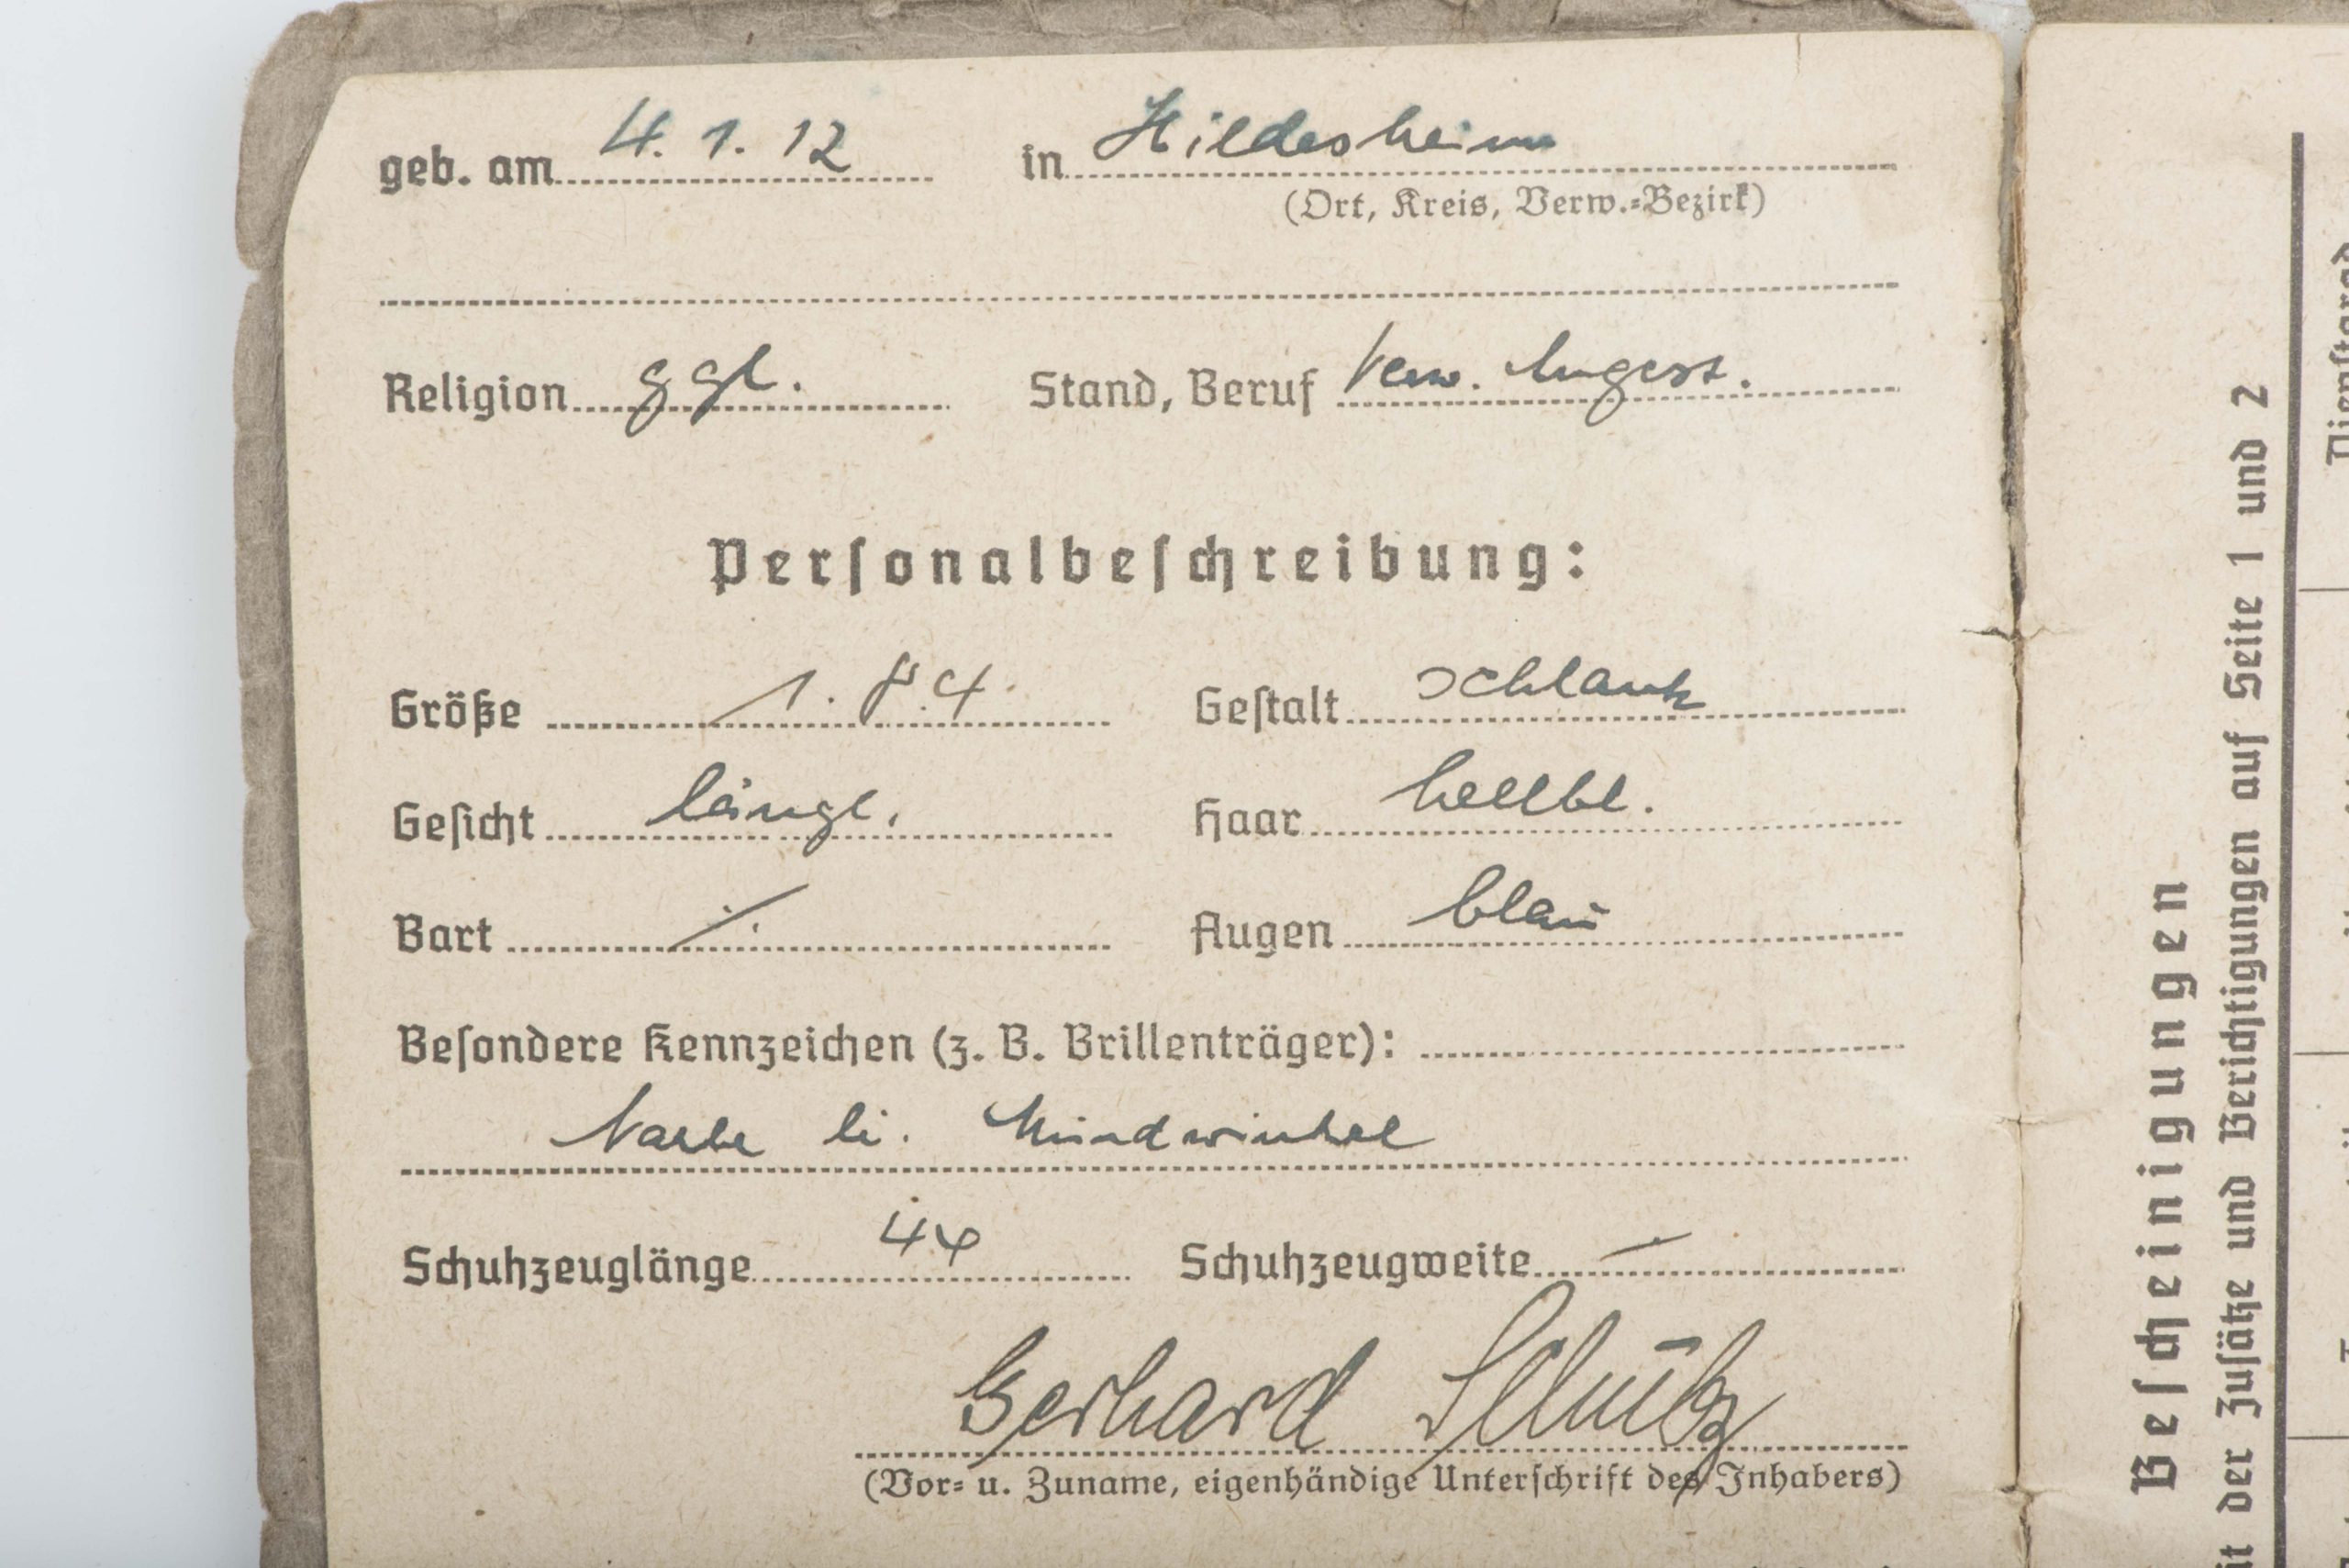 geb. am 4. 1. 12 in Hildesheim
(Ort, Kreis, Verw.-Bezirk)
Religion ggl. Stand, Beruf Verw. Angest.
Personalbeschreibung:
Größe 1.84. Gestalt schlank
Gesicht längl. Haar hellbl.
Bart ./. Augen blau
Besondere Kennzeichen (z. B. Brillenträger):
Narbe li. Mundwinkel
Schuhzeuglänge 44 Schuhzeugweite –
Gerhard Schütz
(Vor- u. Zuname, eigenhändige Unterschrift des Inhabers)
Bescheinigungen
der Zusätze und Berichtigungen auf Seite 1 und 2